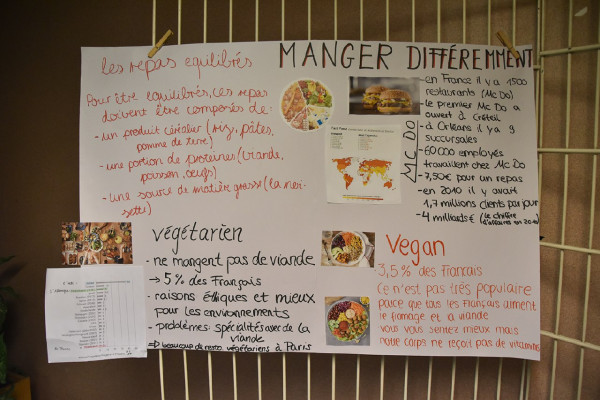 MANGER DIFFÉREMMENT
les repas equilibrés
Pour être equilibrés, ces repas
doivent être composés de:
- un produit céréalier (riz, pâtes,
pomme de terre)
- une portion de proteines (viande,
poisson, œufs)
- une source de matière grasse (la
MC DO
- en France il y a 1500
restaurants (Mc Do)
- le premier Mc Do a
ouvert à Créteil
- à Orléans il y a 9
succursales
- 69000 employés
travaillent chez Mc Do
- 7,50€ pour un repas
- en 2010 il y avait
1,7 millions clients par jour
- 4 milliards€ (le chiffre
d'affaires en 2010)
végétarien
- ne mangent pas de viande
→ 5% des Français
- raisons éthiques et mieux
pour les environnements
- problèmes: spécialités avec de la
viande
⇒ beaucoup de resto végétariens à Paris
Vegan
3,5% des Francais
Ce n'est pas très populaire
parce que tous les Français aiment
le fromage et la viande
vous vous sentez mieux mais
votre corps ne reçoit pas de vitamines